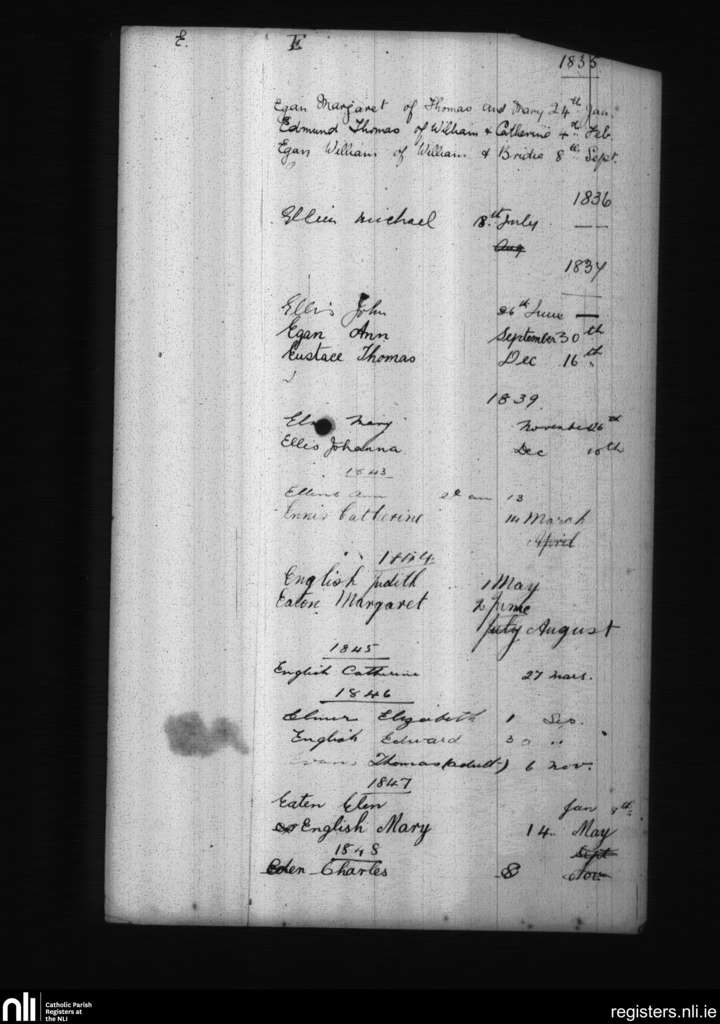 E. E
1835
Egan Margaret of Thomas and Mary 24th Jan.
Edmund Thomas of William & Catherine 4th Feb.
Egan William of William & Bridie 8th Sept.
1836
Michael 18th July
Aug
1837
Ellis John 26th June
Egan Ann September 30th
Eustace Thomas Dec 16th
1839
Mary November 26th
Ellis Johanna Dec 10th
1843
Ann 13
Ennis Catherine 14 March
April
1844
English Judith 1 May
Eaton Margaret 2 June
July August
1845
English Catherine 27 mars.
1846
Elmer Elizabeth 1 Sep.
English Edward 30 "
Evans Thomas (adult) 6 Nov.
1847
Eaten Elen Jan 9th
English Mary 14 May
1848 Sept
Eden Charles 8 Nov
nli
Catholic Parish
Registers at
the NLI
registers.nli.ie